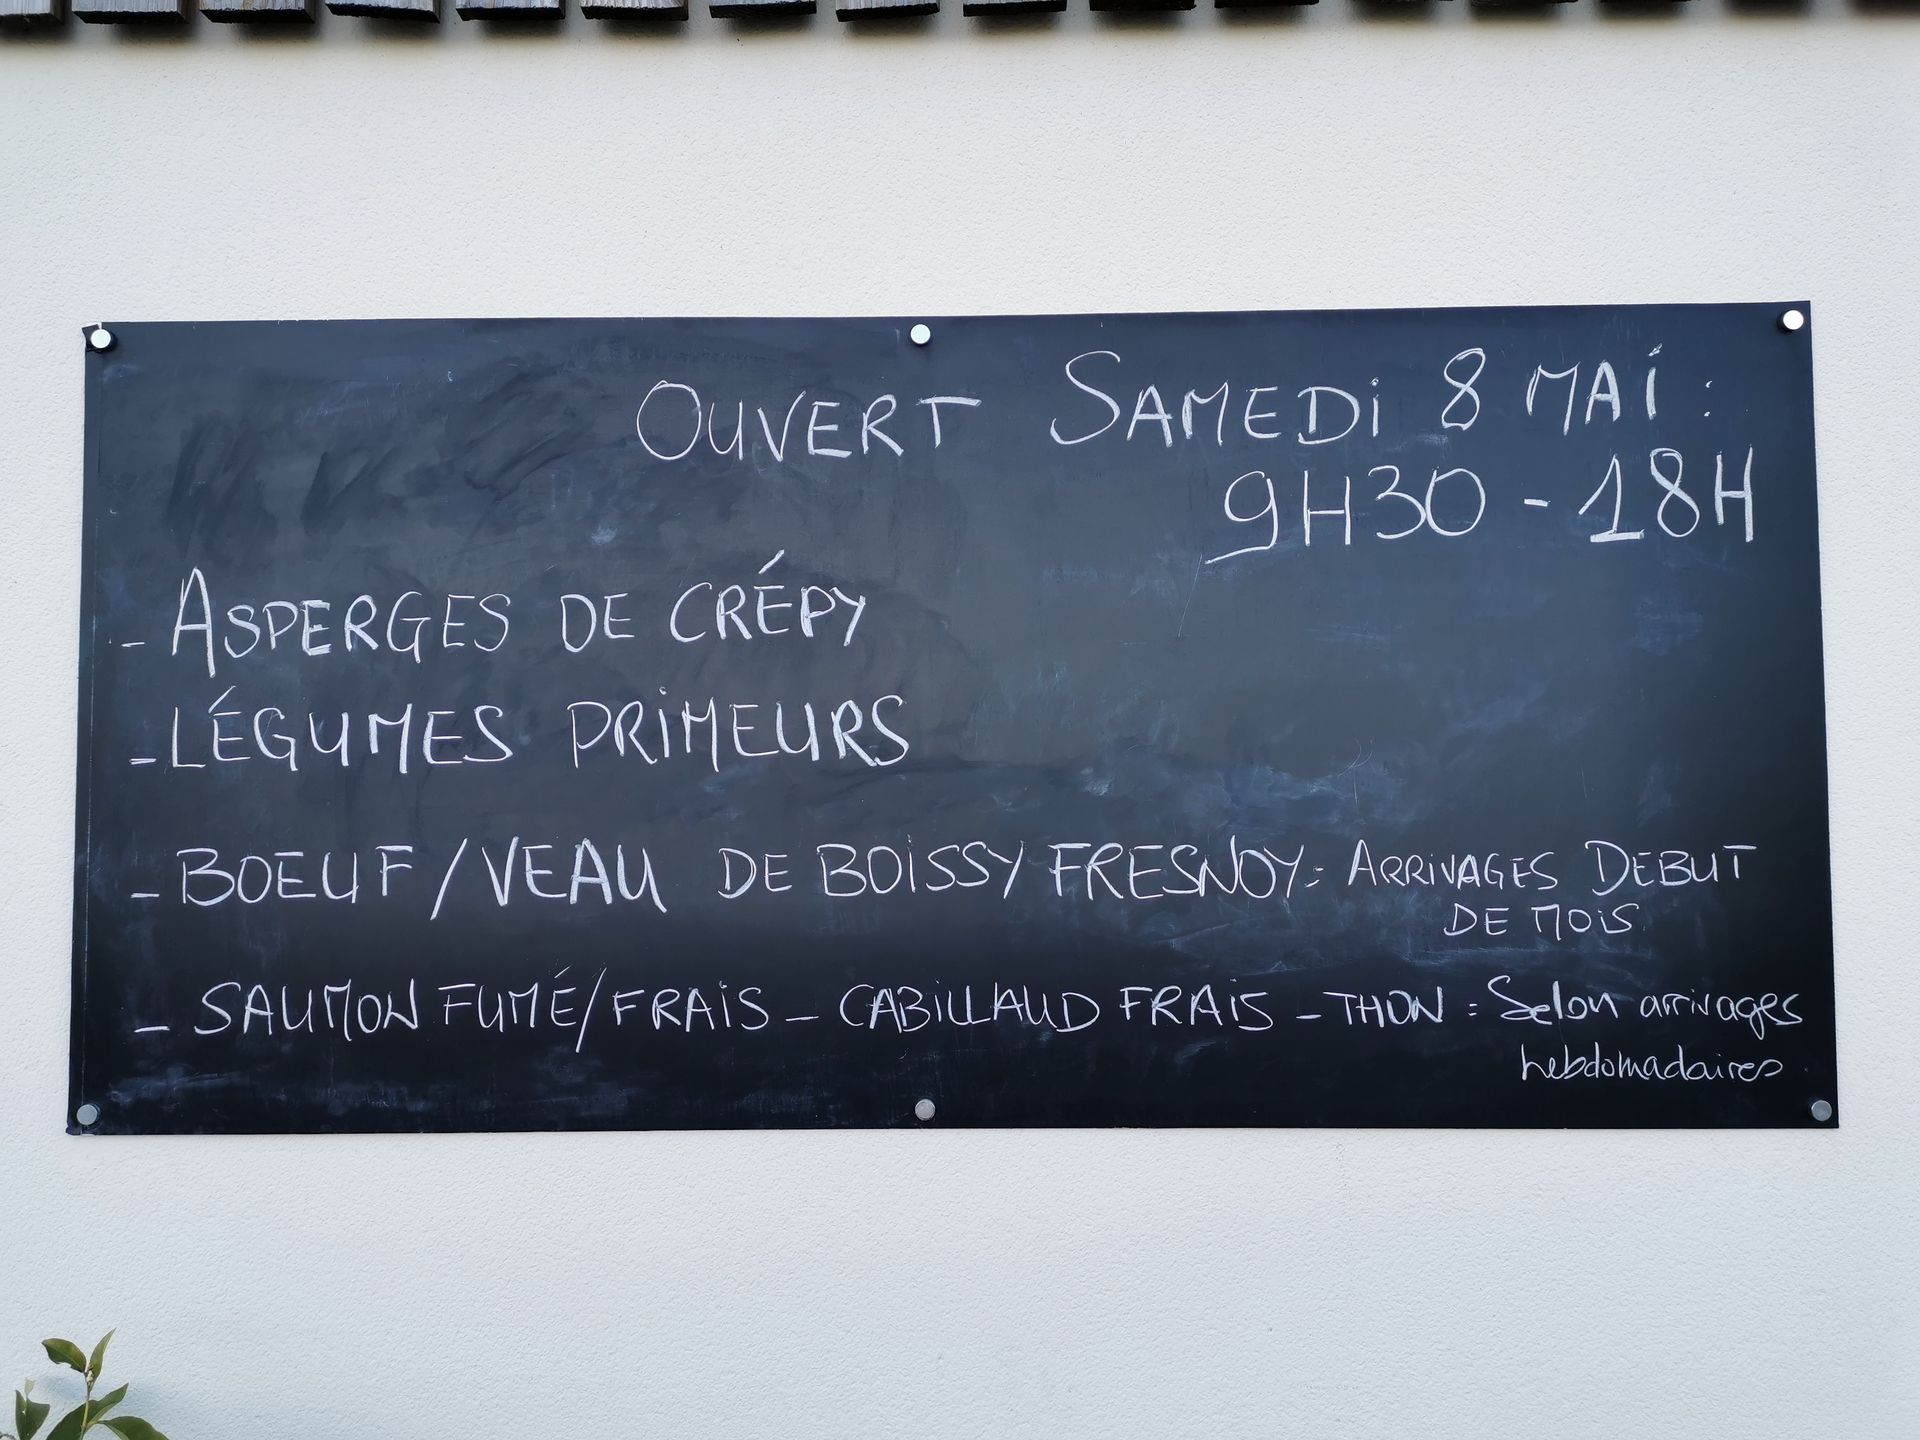 OUVERT SAMEDI 8 MAI :
9H30 - 18H
- ASPERGES DE CRÉPY
- LÉGUMES PRIMEURS
- BOEUF / VEAU DE BOISSY FRESNOY : ARRIVAGES DEBUT
DE MOIS
- SAUMON FUMÉ / FRAIS - CABILLAUD FRAIS - THON : Selon arrivages
hebdomadaires